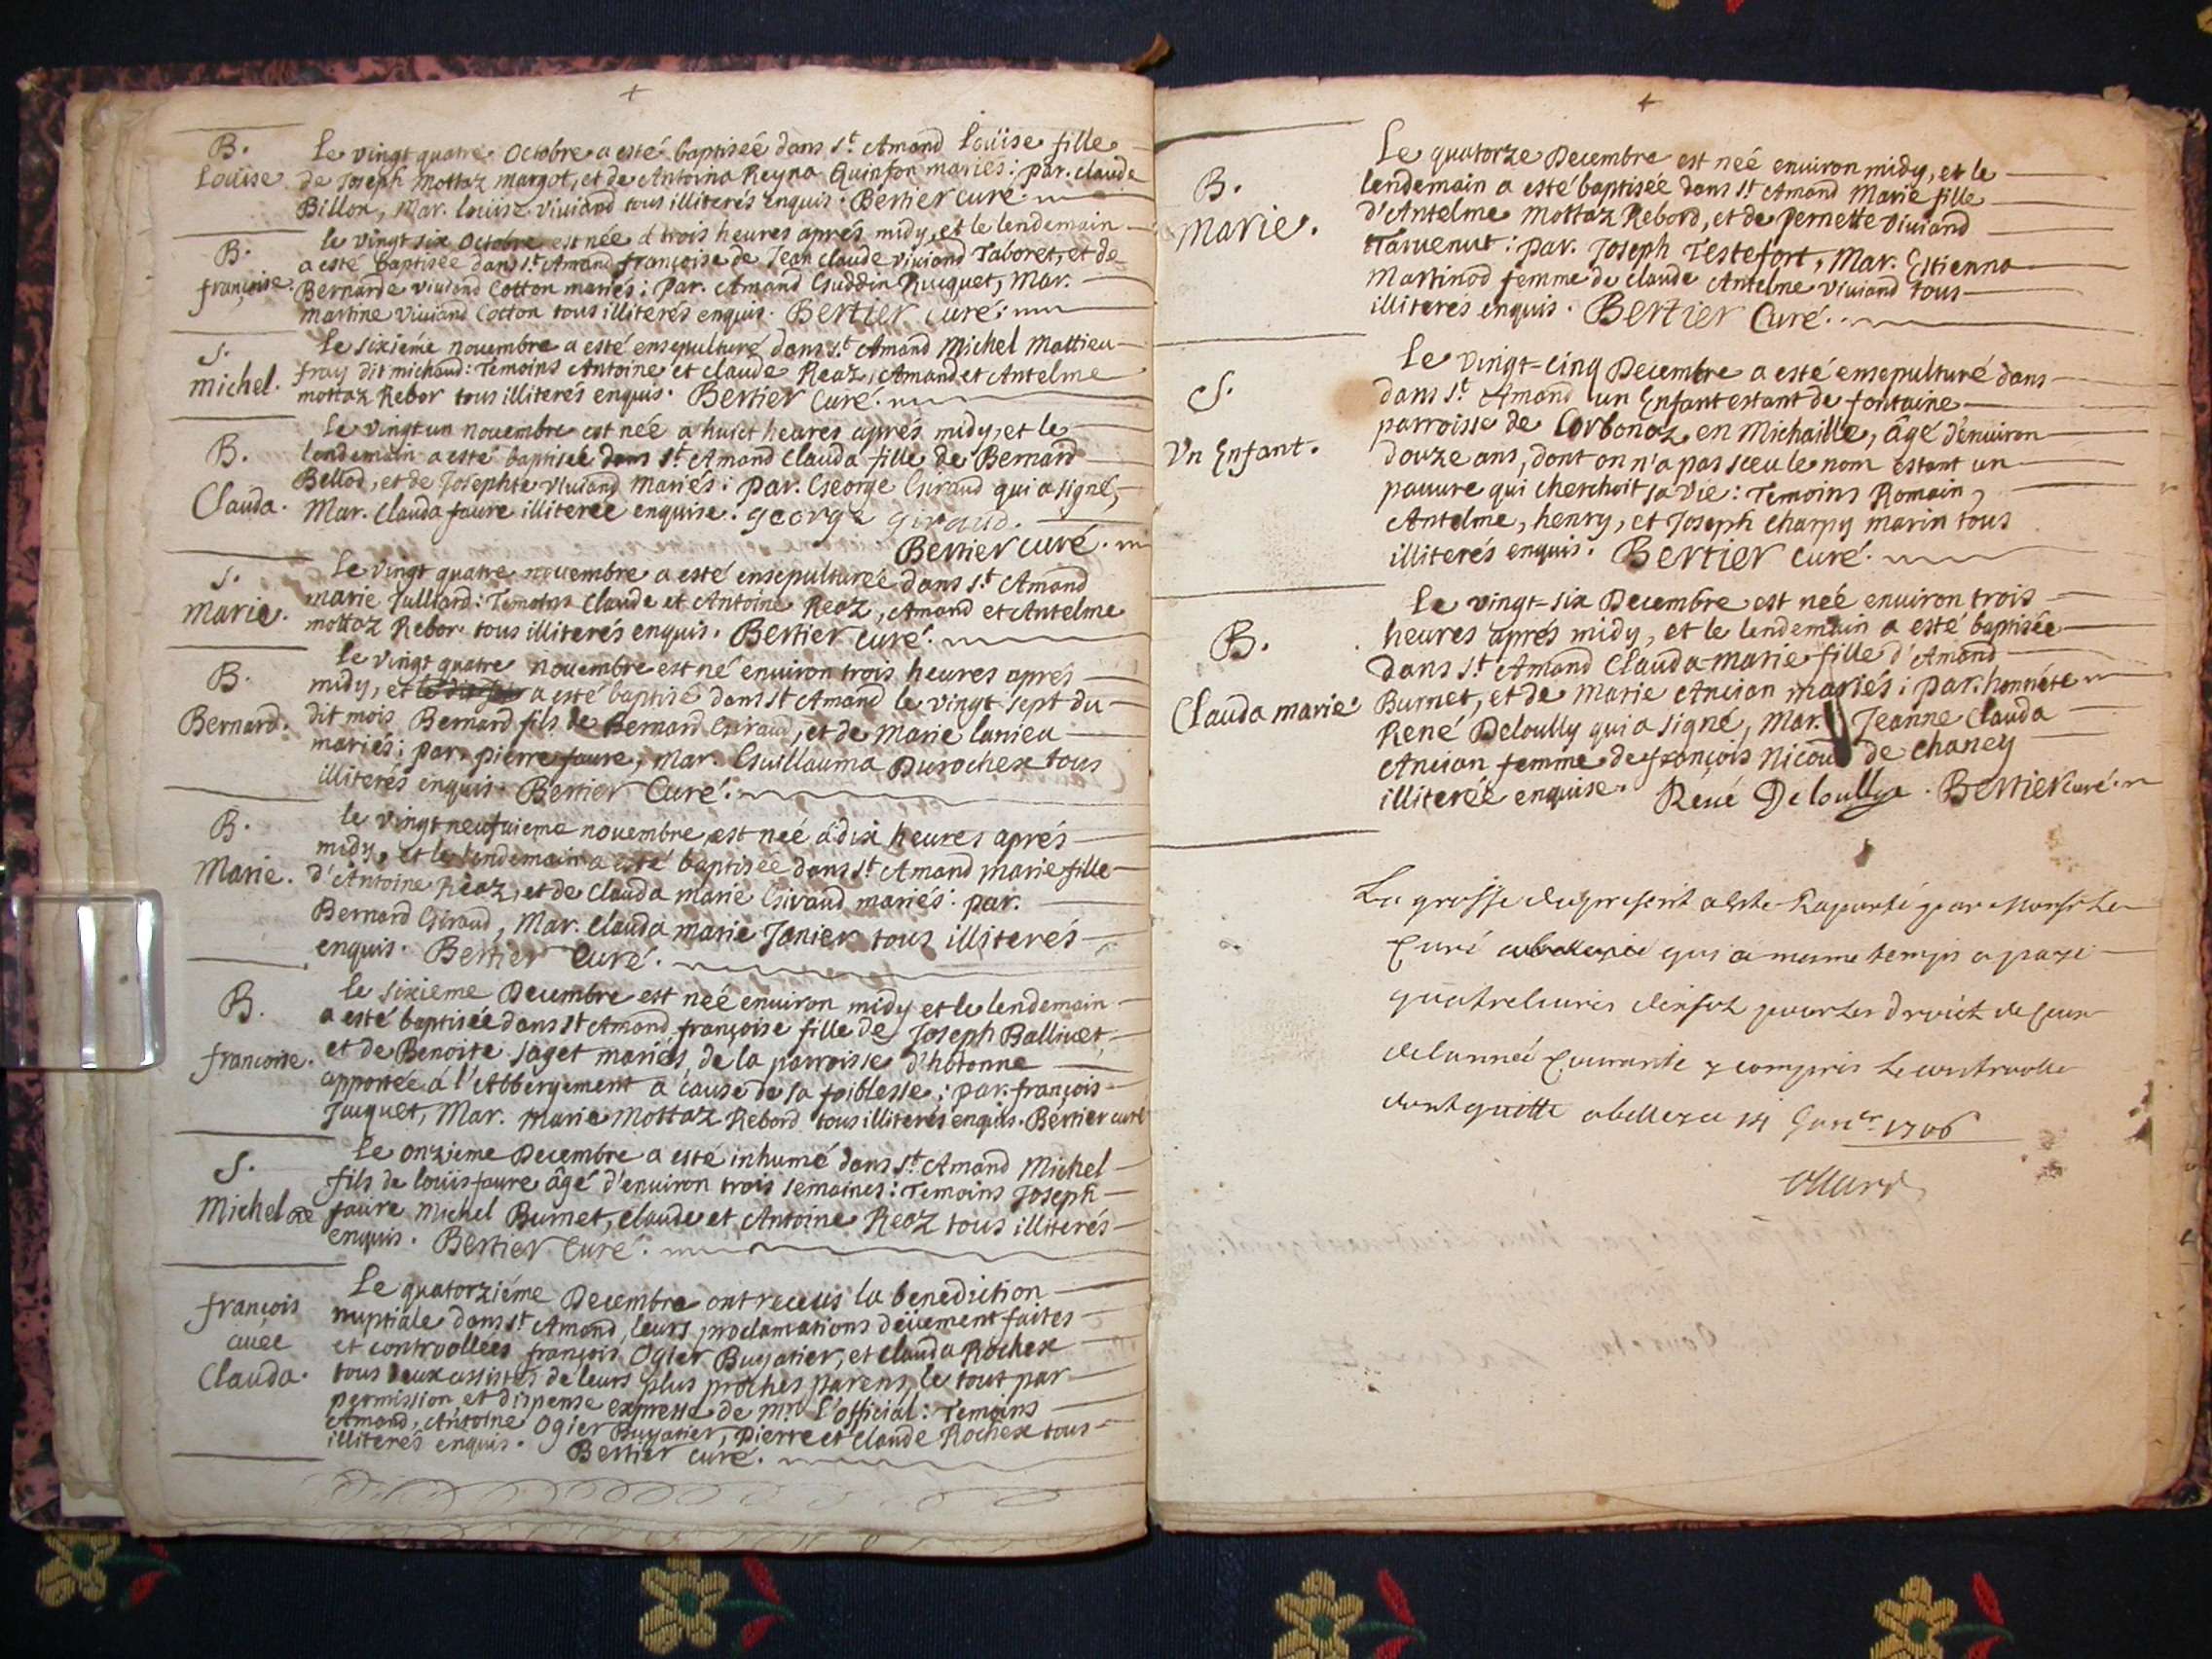 +
B.
Loüise
Le vingt quatre Octobre a esté baptisée dans St Amand Loüise fille
de Joseph Mottaz Margot, et de Antoina Reyna Quinson mariés: par. claude
Billon, Mar. loüise viuiand tous illiterés enquis. Bertier curé.
B.
françoise.
le vingt six Octobre est née à trois heures aprés midy, et le lendemain
a esté baptisée dans St Amand françoise de Jean claude viuiand Taboret, et de
Bernarde viuiand Cotton mariés: par. Amand Guddin Ruquet, Mar.
martine viuiand Cotton tous illiterés enquis. Bertier curé.
S.
michel.
Le sixieme nouembre a esté ensepulturé dans St Amand Michel Mattieu
fray dit michaud: Temoins Antoine et claude Reaz, Amand et Antelme
mottaz Rebor tous illiterés enquis. Bertier Curé.
B.
Clauda.
Le vingt un nouembre est née à huict heures aprés midy, et le
lendemain a esté baptisée dans St Amand Clauda fille de Bernard
Bellod, et de Josephte viuiand mariés: par. George Giraud qui a signé,
Mar. Clauda faure illiterée enquise. george giraud.
Bertier curé.
S.
marie.
Le vingt quatre nouembre a esté ensepulturée dans St Amand
marie Julliard: Temoins Claude et Antoine Reaz, Amand et Antelme
mottaz Rebor tous illiterés enquis. Bertier curé.
B.
Bernard.
Le vingt quatre nouembre est né enuiron trois heures aprés
midy, et a esté baptisé dans St Amand le vingt sept du
dit mois Bernard fils de Bernard Giraud, et de Marie lanieu
mariés: par. pierre faure, Mar. Guillauma Durochex tous
illiterés enquis. Bertier Curé.
B.
Marie.
le vingt neufuieme nouembre est neé à dix heures aprés
midy, et le lendemain a esté baptisée dans St Amand marie fille
d'Antoine Reaz, et de Clauda marie Giraud mariés: par.
Bernard Giraud, Mar. Clauda marie Janier tous illiterés
enquis. Bertier Curé.
B.
francoise.
le sixieme Decembre est neé enuiron midy et le lendemain
a esté baptisée dans St Amand françoise fille de Joseph Balliuet,
et de Benoite saget mariés, de la parroisse d'hotonne
apportée à l'Abbergement à cause de sa foiblesse; par. françois
Juquet, Mar. Marie Mottaz Rebord tous illiterés enquis. Bertier curé
S.
Michel
Le onzieme Decembre a esté inhumé dans St Amand Michel
fils de loüis faure âgé d'enuiron trois semaines: Temoins Joseph
faure Michel Burnet, claude et Antoine Reaz tous illiterés
enquis. Bertier Curé.
françois
auec
Clauda.
Le quatorziéme Decembre ont receus la benediction
nuptiale dans St Amand, leurs proclamations deüement faites
et controollées françois Ogier Buyatier, et Clauda Rochex
tous deux assistés de leurs plus proches parens, le tout par
permission et dispense expresse de mr l'official: Temoins
Amand, Antoine Ogier Buyatier, pierre et claude Rochex tous
illiterés enquis. Bertier curé.
+
B.
Marie.
Le quatorze Decembre est neé enuiron midy, et le
lendemain a esté baptisée dans St Amand Marie fille
d'Antelme Mottaz Rebord, et de pernette viuiand
: par. Joseph Testefort, Mar. Estienna
Martinod femme de claude Antelme viuiand tous
illiterés enquis. Bertier Curé.
S.
Vn Enfant.
Le vingt-cinq Decembre a esté ensepulturé dans
dans St Amand un Enfant estant de fontaine
parroisse de Corbonoz en Michaille, âgé d'enuiron
douze ans, dont on n'a pas sceu le nom estant un
pauure qui cherchoit sa vie: Temoins Romain,
Antelme, henry, et Joseph charpy marin tous
illiterés enquis. Bertier curé.
B.
Clauda marie.
Le vingt-six Decembre est neé enuiron trois
heures aprés midy, et le lendemain a esté baptisée
dans St Amand Clauda-marie fille d'Amand
Burnet, et de Marie Ancian mariés: par. honnéte
René Deloully qui a signé, Mar. Jeanne Clauda
Ancian femme de françois Nicoud de chaney
illiterée enquise. René Deloully. Bertier curé.
La grosse du present a este Raporté par Monsr Le
Curé qui a mesme temps a payé
quatre liures dix sols pour les droict de
de lannee Courante y compris le controolle
dont quitte a belleya 14 Janer 1706
Ollard